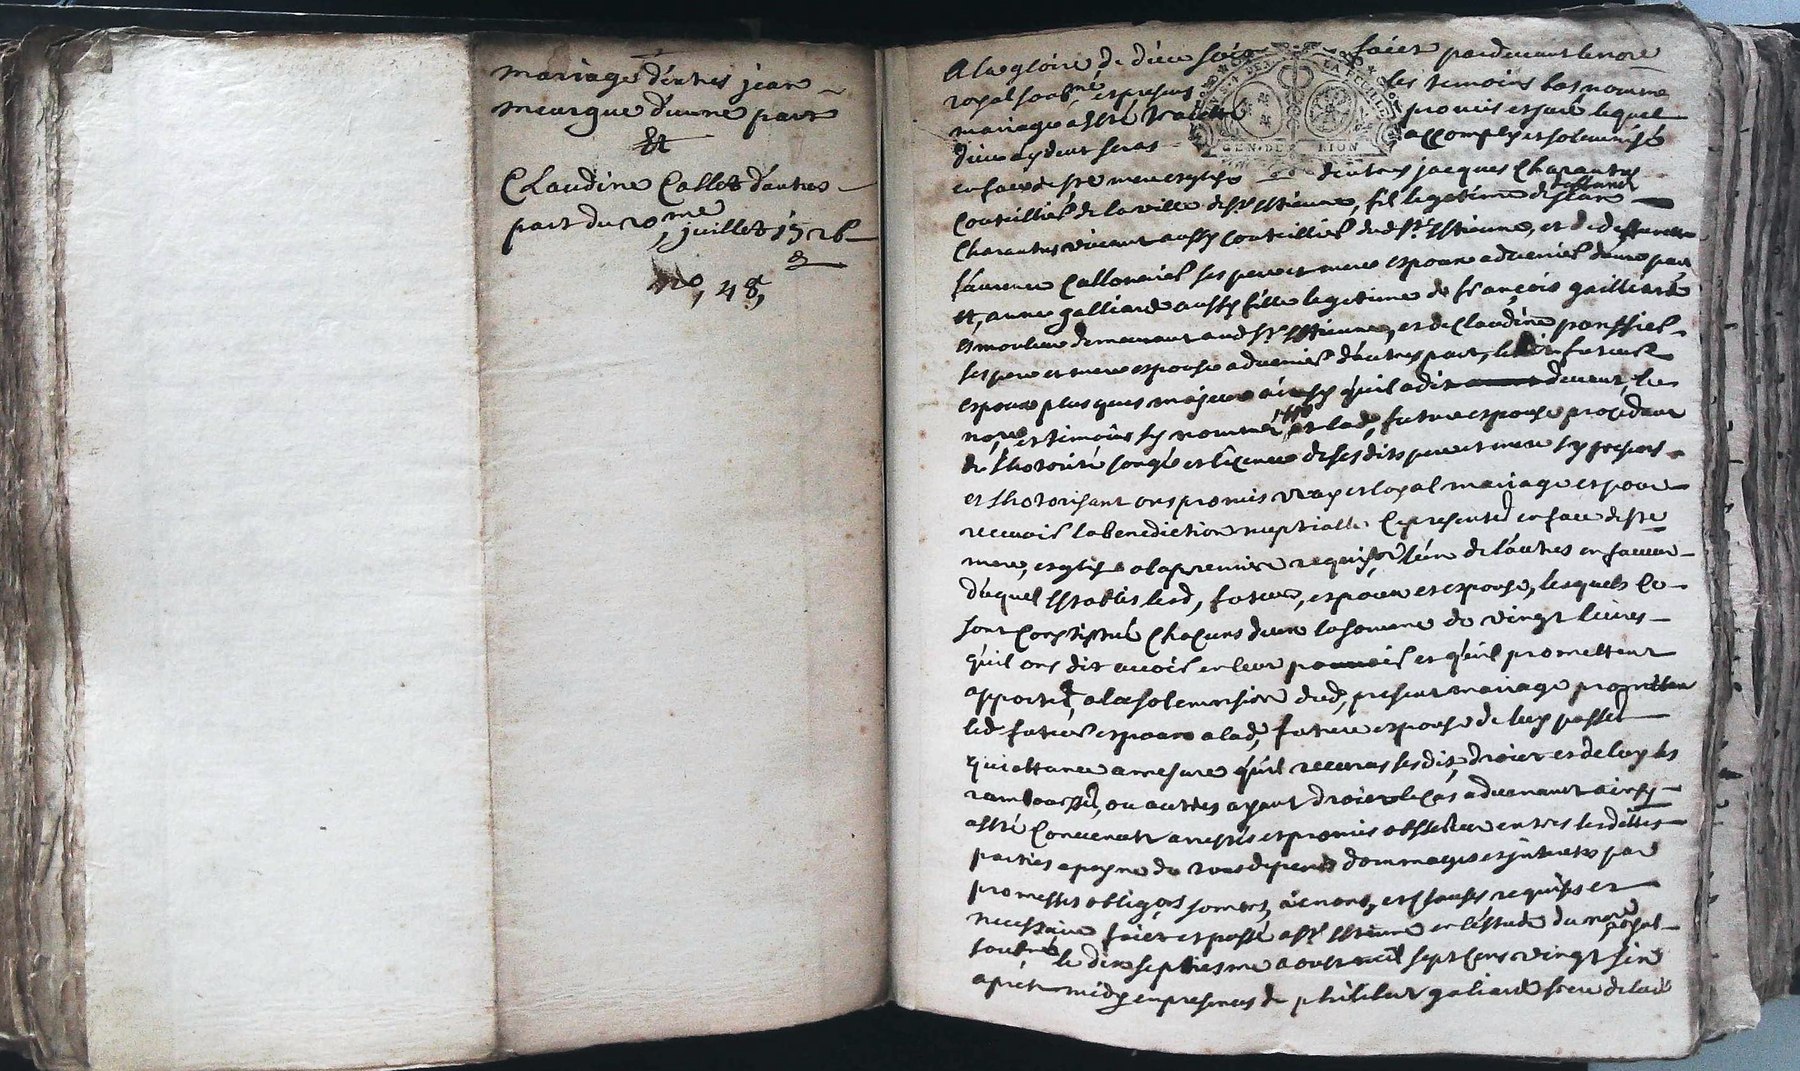 mariage d'entres jean
meurgue d'eunne part
Et
Claudine Callet d'autres
part du 20me juillet 1726
No, 48,
A la gloire de dieu soi faict pardevant le nore
royal soubné, et presents les temoins bas nommé
mariage a esté traitté promis et juré lequel
dieu aydeut seras accomply et solemnisé
en face de ste mere esglise d'entres jacques Charantus
Couteillier de la ville de st Estienne, fil legetime de
Charantus vivant aussy couteillier dud st Estienne, et de deffuncte
ses pere et mere espoux advenir d'une part
Et, anne galliard aussy fille legetime de françois gailliard
esmouleur demeurant aud st Estienne, et de Claudine ponssiel
ses pere et mere espouse advenir d'autres part, ledit futeur
espoux plus ques majeur ainsy qu'il a dit devent, les
nore et temoins sy nommés et lad, future espouse procedant
de l'hotorité congé et licence de ses dits pere et mere sy presens
et l'hotorisant ons promis vray et loyal mariage et pour
recevoir la benediction nuptialle Ce presenter en face de ste
mere, esglise a la premiere requison l'un de l'autres en faveur
duquel Establis lesd, futeur, espoux et espouse, lesquels ce
sont Constitué Chacuns d'eux la somme de vingt livres
qu'il ons dit avoir en leur pouvoir et qu'il promettent
apporter, a la solemnision dud, present mariage promettan
led futeur espoux a lad, future espouse de luy passer
quittance a mesure qu'il receuras ses dit, droict et de luy les
rambourser, ou autres ayant droict le cas advenant ainsy
esté Convenut arrestés et promis observer entres lesdittes
parties a peyne de tous depens dommages et jnterets par
promesses obligons, soments, renons, et clauses requises et
necessaire faict et passé a st Estienne en l'estude du nore royal
soubné le dix septiesme aoust mil sept cens vingt six
aprés midy en presences de philibert galiard frere de lad
GEN·DE RION